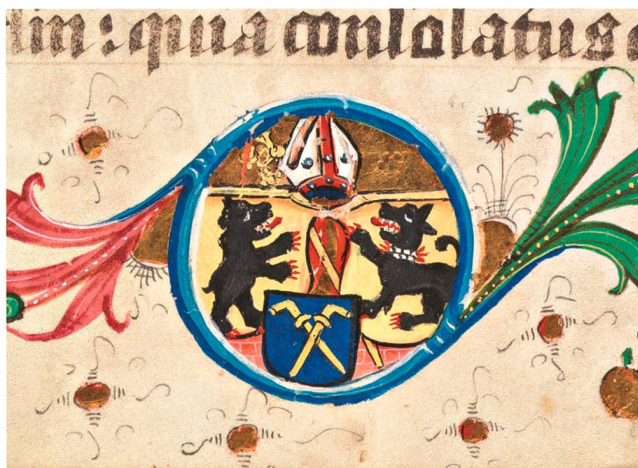 quia consolatus